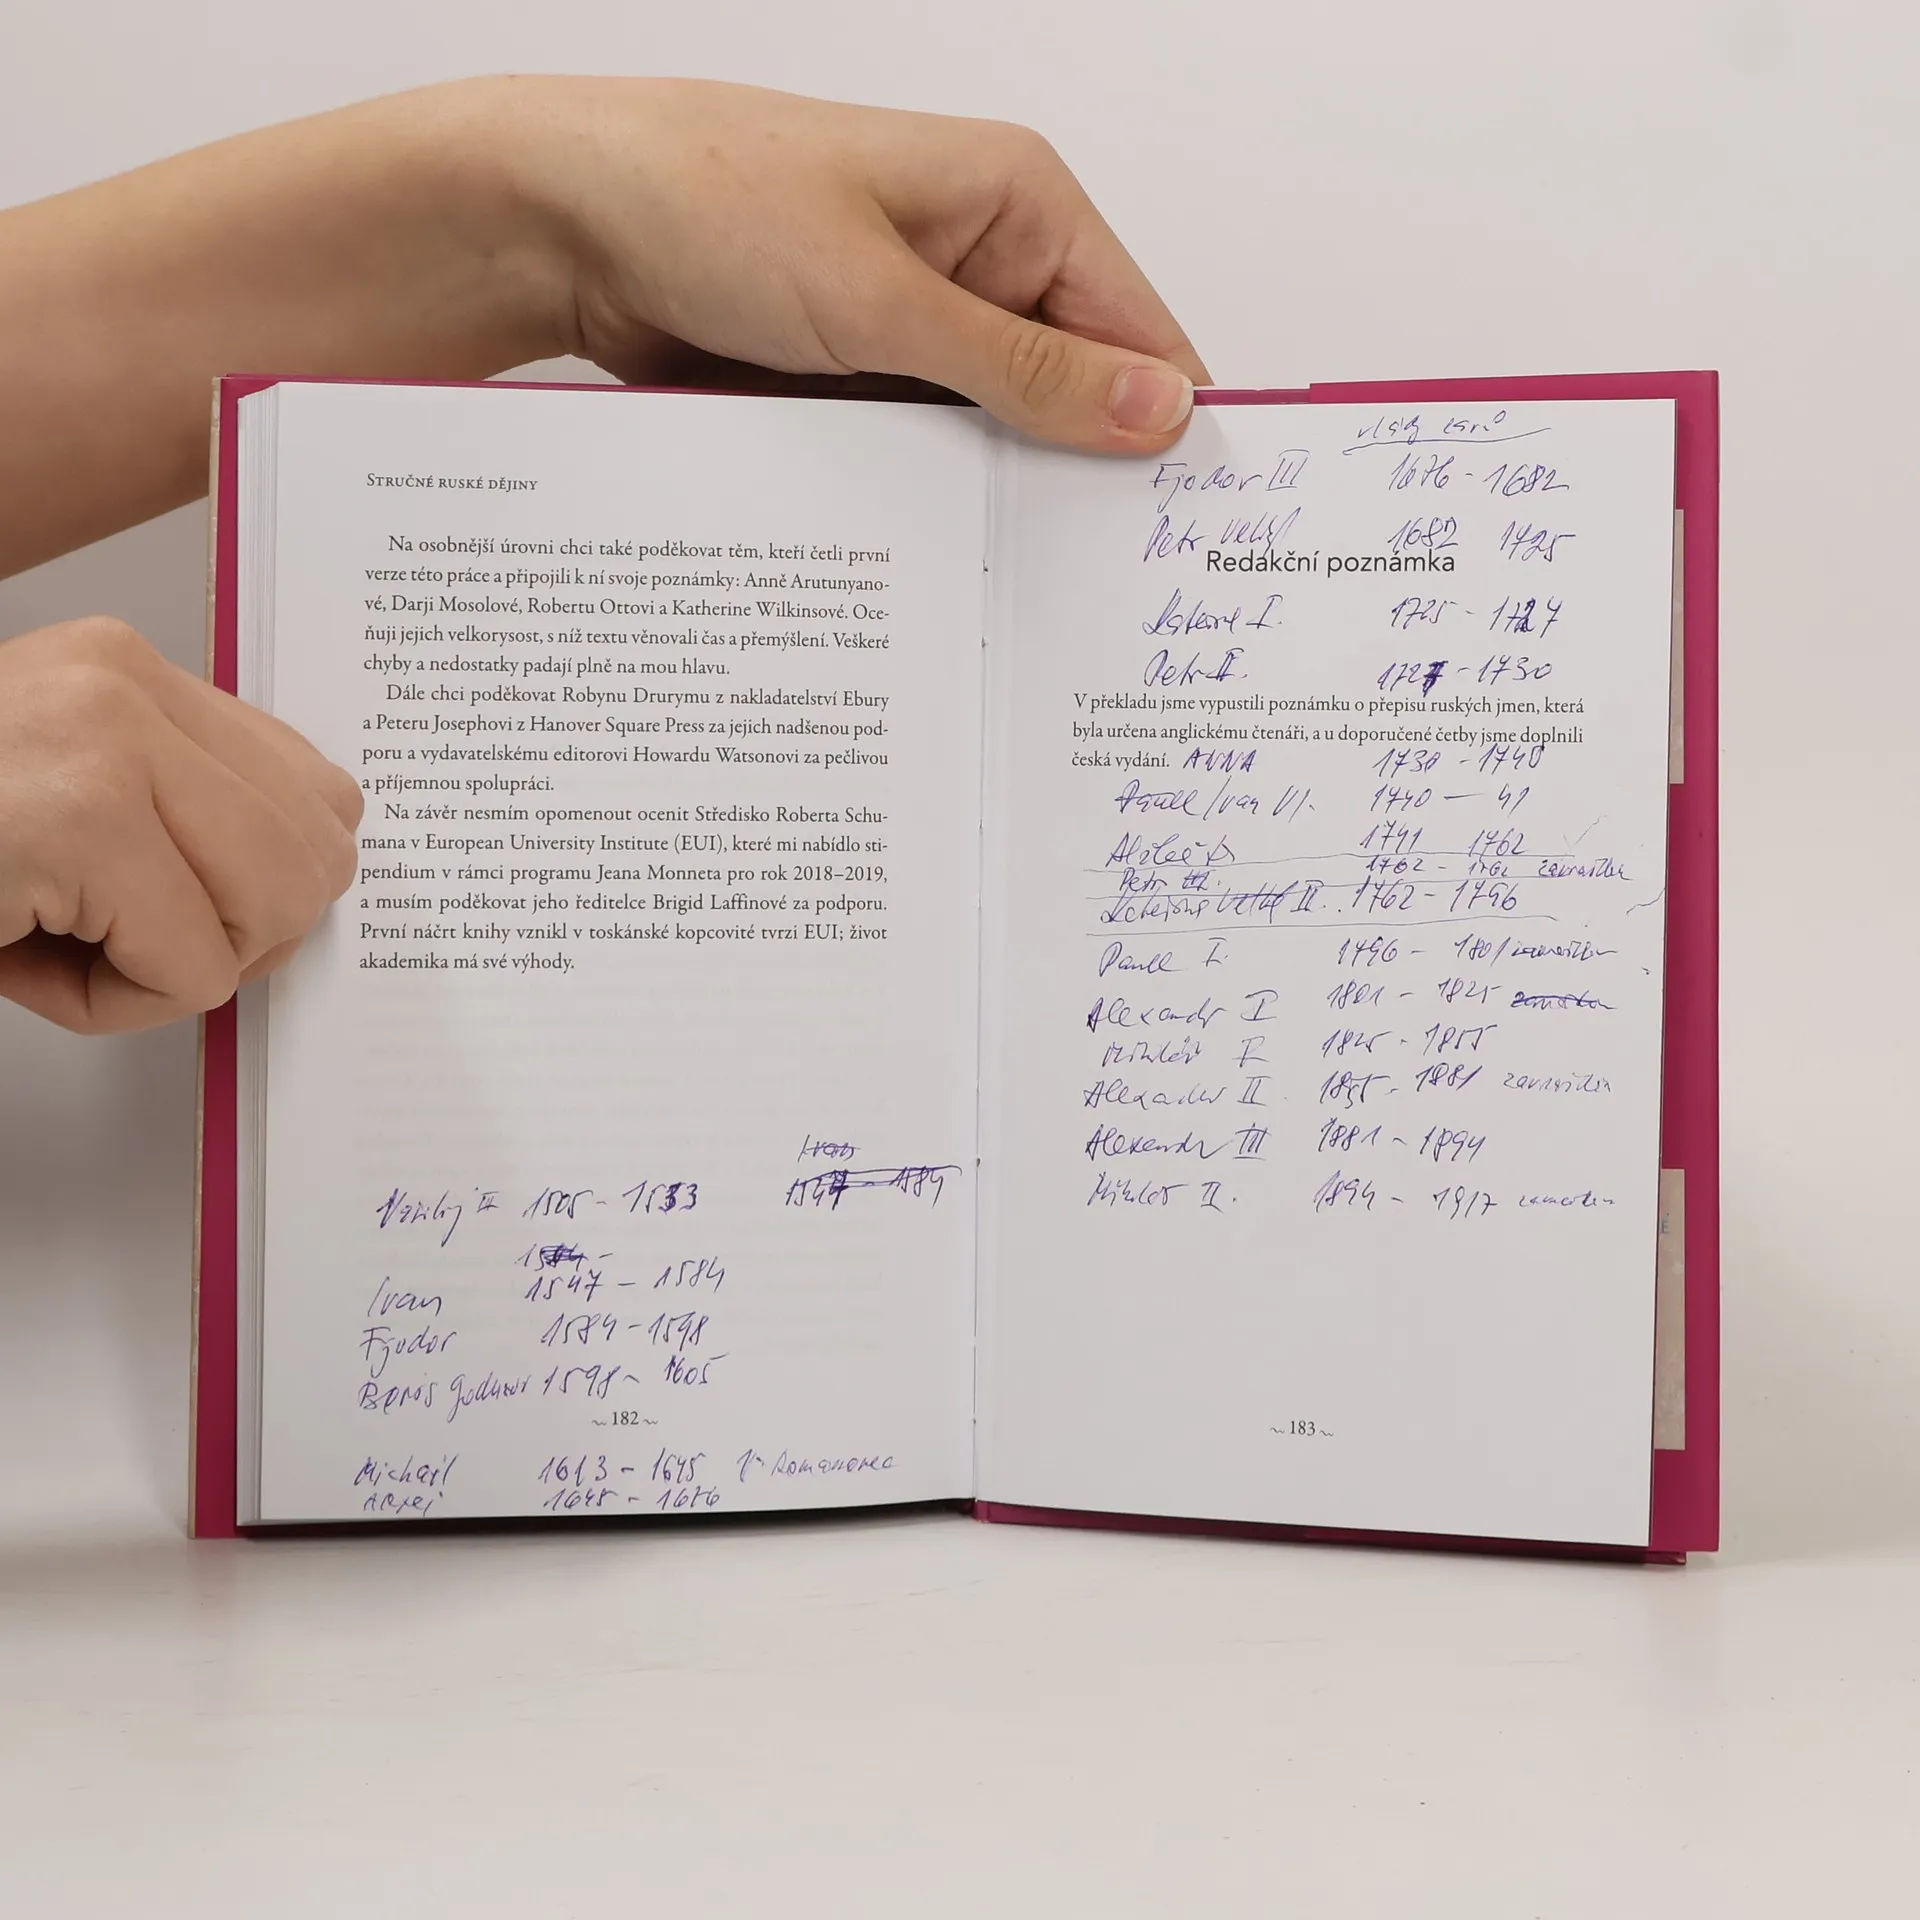 STRUČNÉ RUSKÉ DĚJINY
Na osobnější úrovni chci také poděkovat těm, kteří četli první
verze této práce a připojili k ní svoje poznámky: Anně Arutunyano-
vé, Darji Mosolové, Robertu Ottovi a Katherine Wilkinsové. Oce-
ňuji jejich velkorysost, s níž textu věnovali čas a přemýšlení. Veškeré
chyby a nedostatky padají plně na mou hlavu.
Dále chci poděkovat Robynu Drurymu z nakladatelství Ebury
a Peteru Josephovi z Hanover Square Press za jejich nadšenou pod-
poru a vydavatelskému editorovi Howardu Watsonovi za pečlivou
a příjemnou spolupráci.
Na závěr nesmím opomenout ocenit Středisko Roberta Schu-
mana v European University Institute (EUI), které mi nabídlo sti-
pendium v rámci programu Jeana Monneta pro rok 2018–2019,
a musím poděkovat jeho ředitelce Brigid Laffinové za podporu.
První náčrt knihy vznikl v toskánské kopcovité tvrzi EUI; život
akademika má své výhody.
Ivan
1547 – 1584
Vasilij III 1505 - 1533
Ivan 1547 – 1584
Fjodor 1584 – 1598
Boris Godunov 1598 – 1605
~ 182 ~
Michail 1613 – 1645
Alexej 1645 – 1676
vlády carů
Fjodor III 1676 - 1682
Petr Veliký 1682 1725
Redakční poznámka
I. 1725 - 1727
Petr II. 1727 - 1730
V překladu jsme vypustili poznámku o přepisu ruských jmen, která
byla určena anglickému čtenáři, a u doporučené četby jsme doplnili
česká vydání. ANNA 1730 - 1740
Ivan VI. 1740 — 41
1741 1762
Petr III. 1762 - 1762
II. 1762 - 1796
Pavel I. 1796 - 1801
Alexandr I 1801 - 1825
Mikuláš I 1825 - 1855
Alexandr II 1855 - 1881
Alexandr III 1881 - 1894
Mikuláš II. 1894 - 1917
~ 183 ~